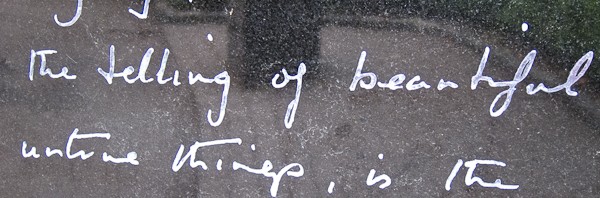 the telling of beautiful
untrue things, is the